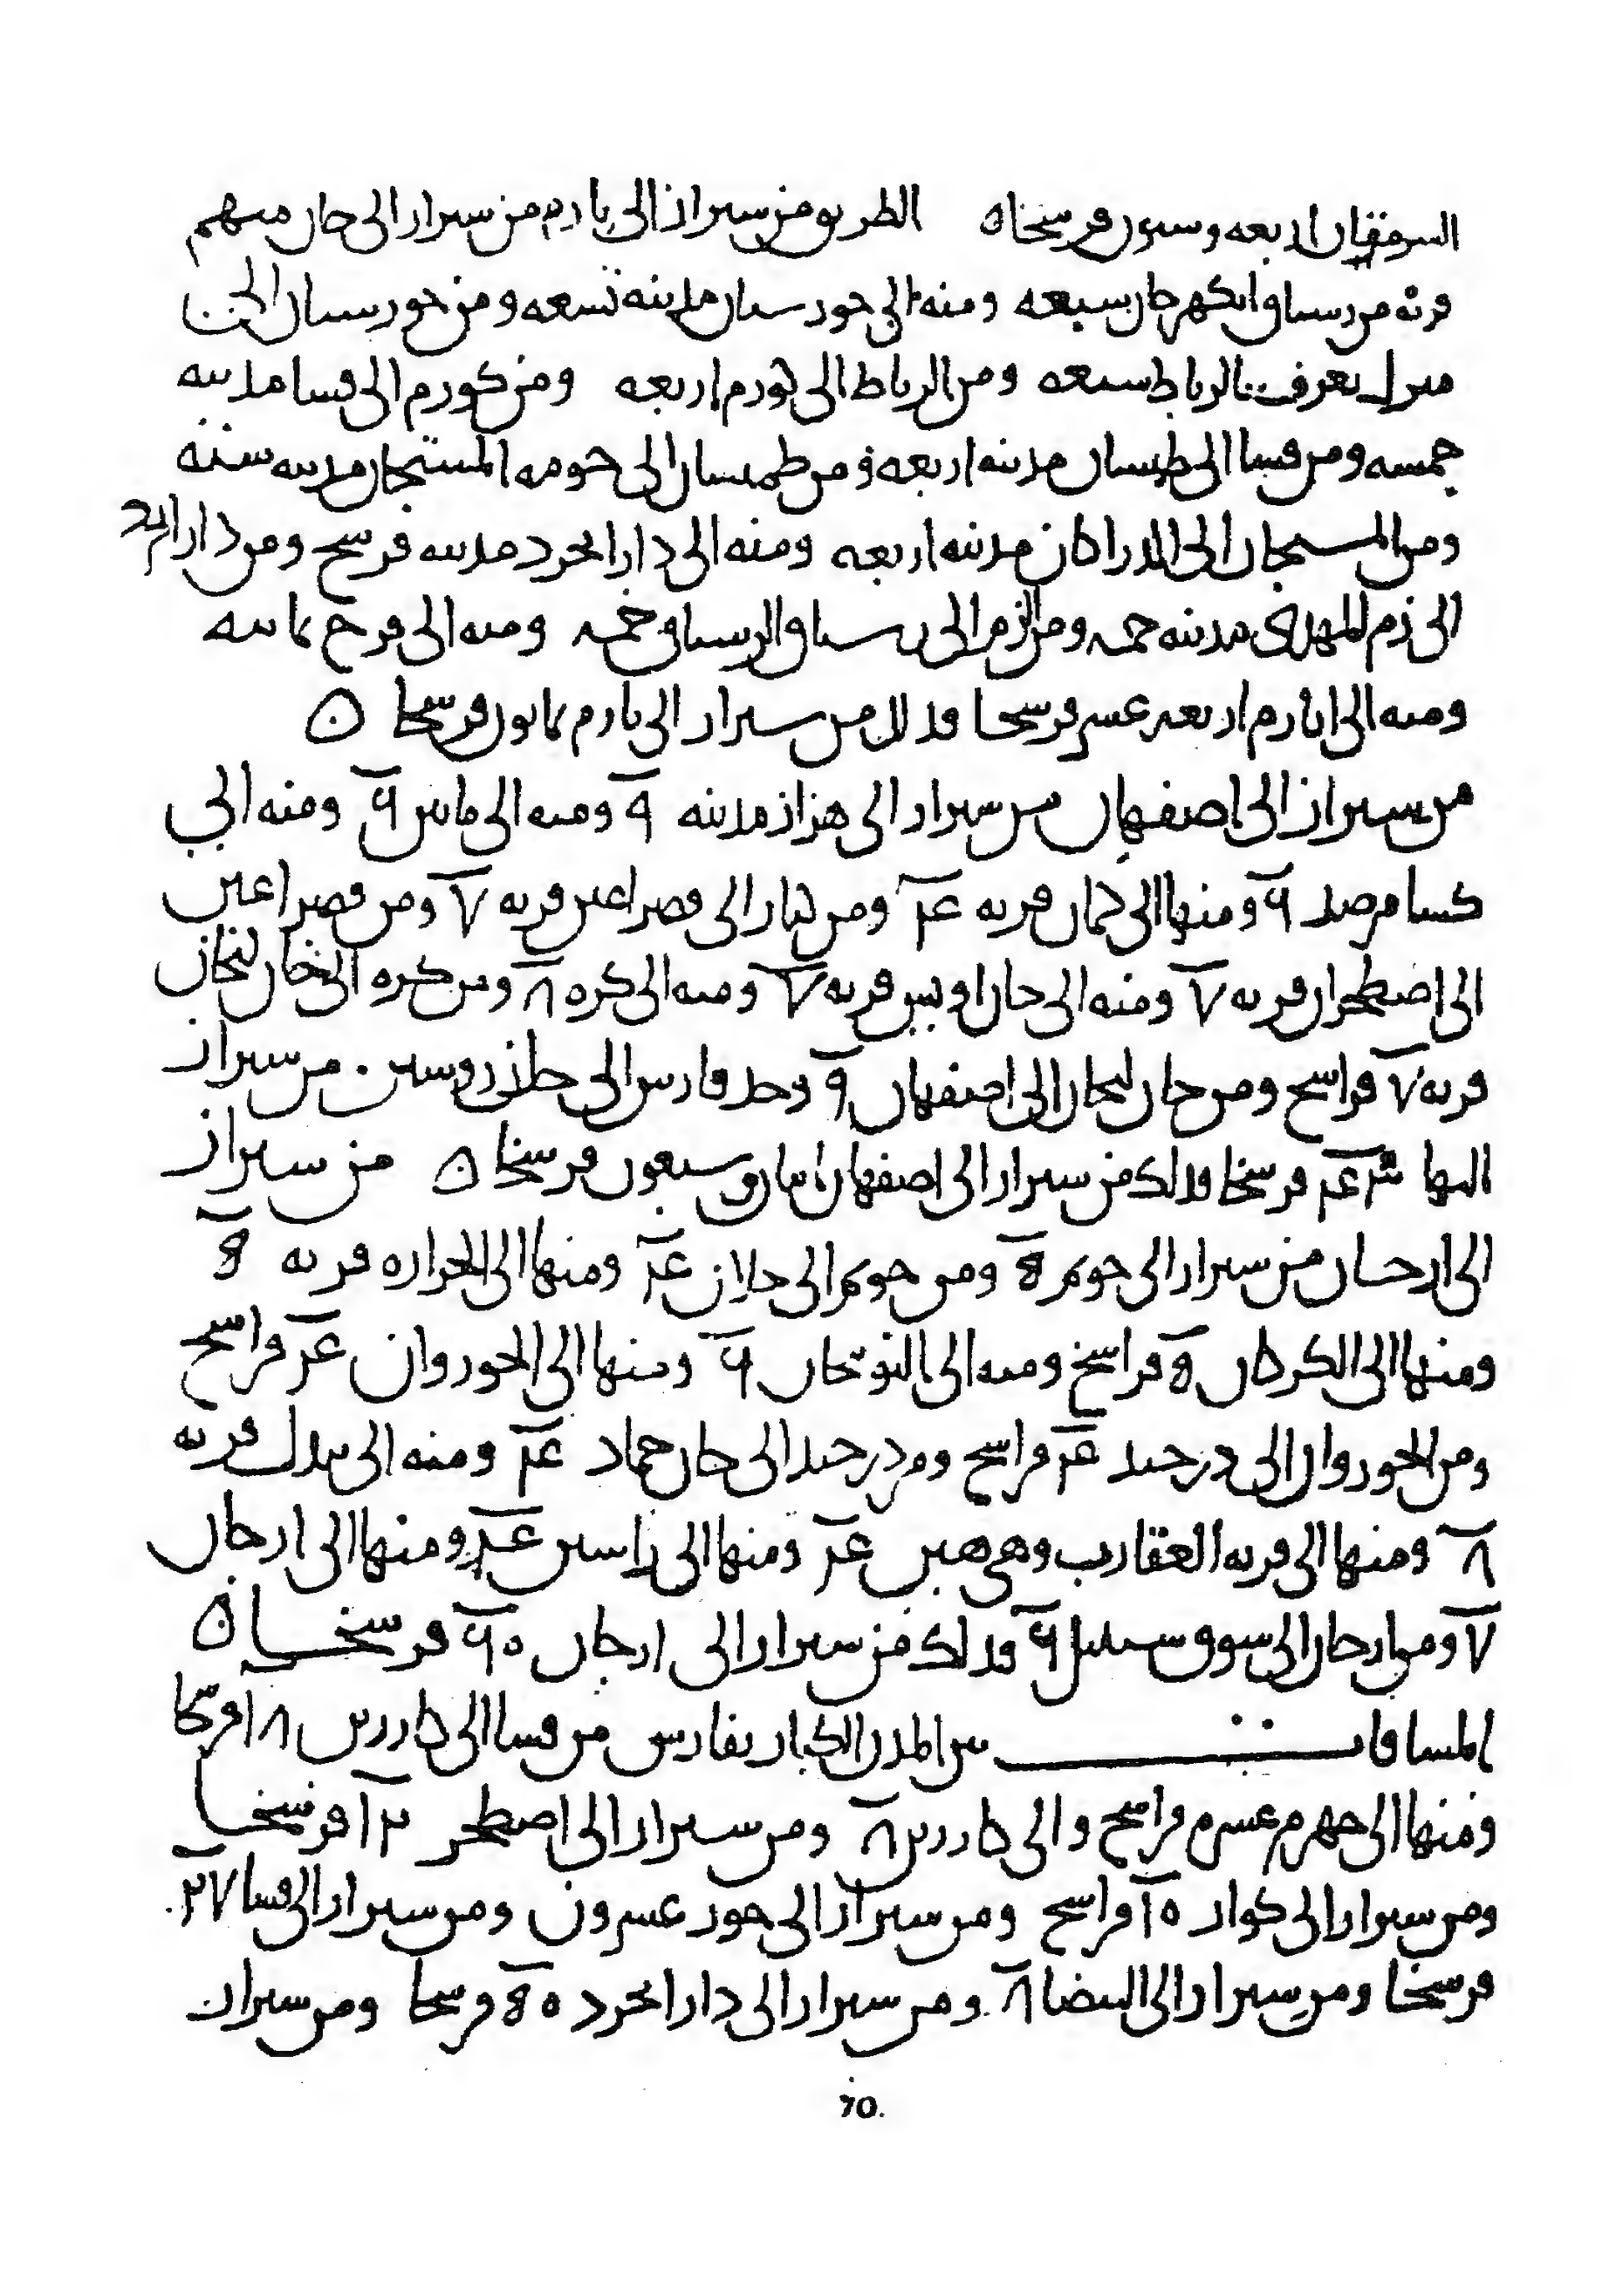 السرمقان اربعه وستون فرسخا ه الطريق من سيراز الى بارم من سيراز الى خان ميهم
قرية من رستاق الكهرجان سبعه ومنه الى خورستان مدينه تسعه ومن خورستان الى
منزل يعرف بالرباط سبعه ومن الرباط الى كورم اربعه ومن كورم الى فسا مدينه
خمسه ومن فسا الى طمستان مدينه اربعه ومن طمستان الى حومه المستجان مدينه سته
ومن المستجان الى الدراكان مدينه اربعه ومنه الى دارابجرد مدينه فرسخ ومن دارابجرد
الى زم المهدى مدينه خمسه ومن الزم الى رستاق الرستاق خمسه ومنه الى فرج ثمانيه
ومنه الى تارم اربعه عشر فرسخا فذلك من شيراز الى تارم ثمانون فرسخا ه
من سيراز الى اصفهان من سيراز الى هزار مدينه ٩ ومنه الى ماين ٦ ومنه الى
كسا مرصد ٦ ومنها الى كمار قريه ٤ ومن كمار الى قصر اعين قريه ٧ ومن قصر اعين
الى اصطخران قريه ٧ ومنه الى خان اويس قريه ٧ ومنه الى كره ٨ ومن كره الى خان لنجان
قريه ٧ فراسخ ومن خان لنجان الى اصفهان ٩ وحد فارس الى خان روسين من سيراز
اليها ٤٣ فرسخا فذلك من سيراز الى اصفهان اثنان وسبعون فرسخا ه من سيراز
الى ارجان من سيراز الى جويم ٥ ومن جويم الى خلان ٤ ومنها الى الخراره قريه ٥
ومنها الى الكركان ٥ فراسخ ومنه الى النوبنجان ٦ ومنها الى الخوروان ٤ فراسخ
ومن الخوروان الى درخيد ٤ فراسخ ومن درخيد الى خان حماد ٤ ومنه الى بندك قريه
٨ ومنها الى قريه العقارب وهى هير ٤ ومنها الى راسين ٤ ومنها الى ارجان
٧ ومن ارجان الى سوق سنبيل ٦ فذلك من سيراز الى ارجان ٦٠ فرسخا ه
المسافات بين المدن الكبار بفارس من فسا الى كازرين ١٨ فرسخا
ومنها الى جهرم عشرم فراسخ والى كازرين ٨ ومن سيراز الى اصطخر ١٢ فرسخا
ومن سيراز الى كوار ١٠ فراسخ ومن سيراز الى جور عشرون ومن سيراز الى فسا ٢٧
فرسخا ومن سيراز الى البيضا ٨ ومن سيراز الى دارابجرد ٥٠ فرسخا ومن سيراز
70.